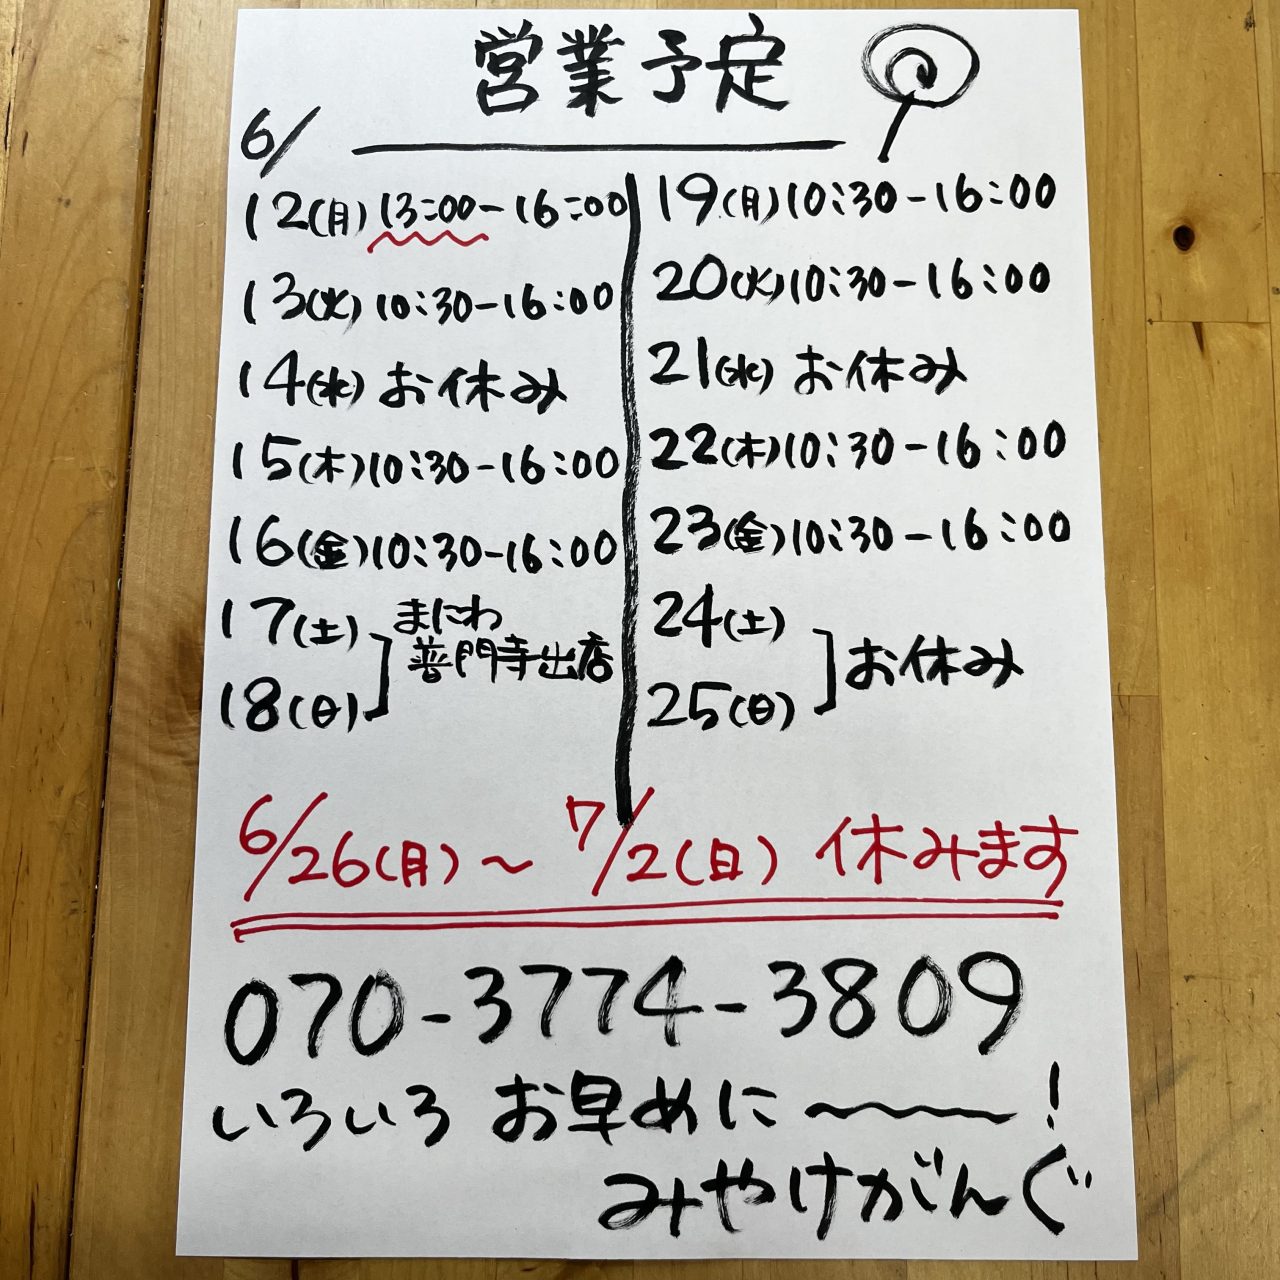 営業予定
6/
12(月)13:00-16:00
13(火)10:30-16:00
14(水)お休み
15(木)10:30-16:00
16(金)10:30-16:00
17(土)
18(日)
まにわ
普門寺出店
19(月)10:30-16:00
20(火)10:30-16:00
21(水)お休み
22(木)10:30-16:00
23(金)10:30-16:00
24(土)
25(日)
お休み
6/26(月)～7/2(日)休みます
070-3774-3809
いろいろ お早めに〜〜〜!
みやけがんぐ